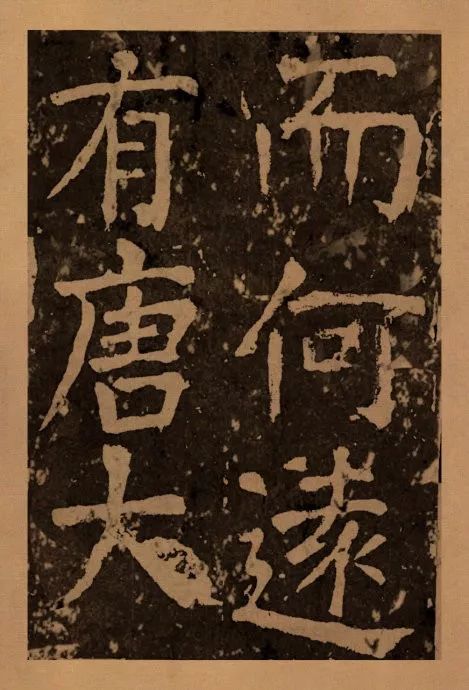 而何遠
有唐大